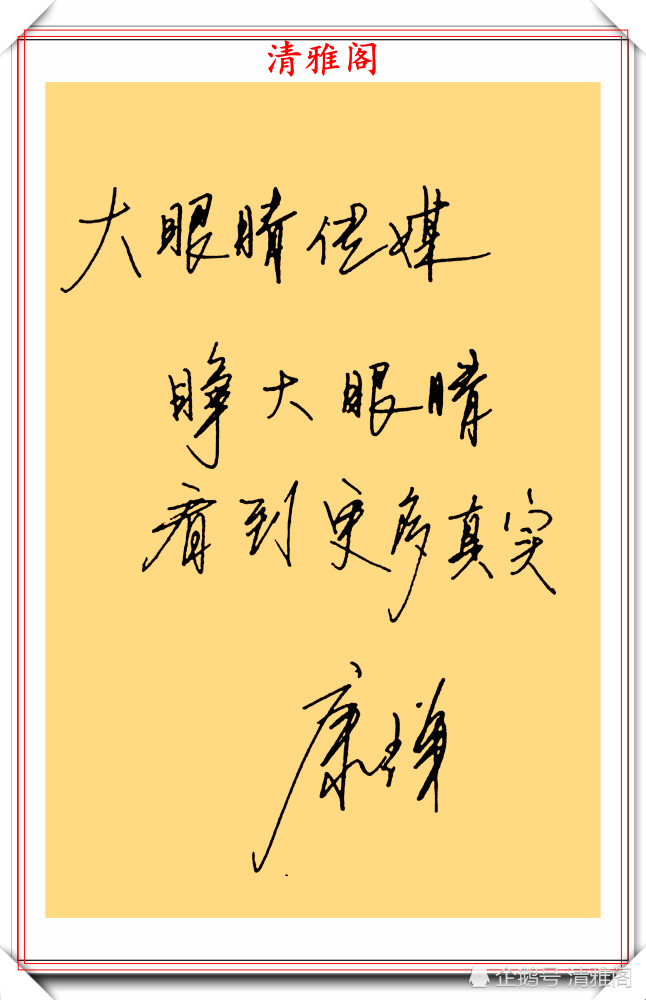 清雅阁
大眼睛传媒
睁大眼睛
看到更多真实
康辉
企鹅号 清雅阁